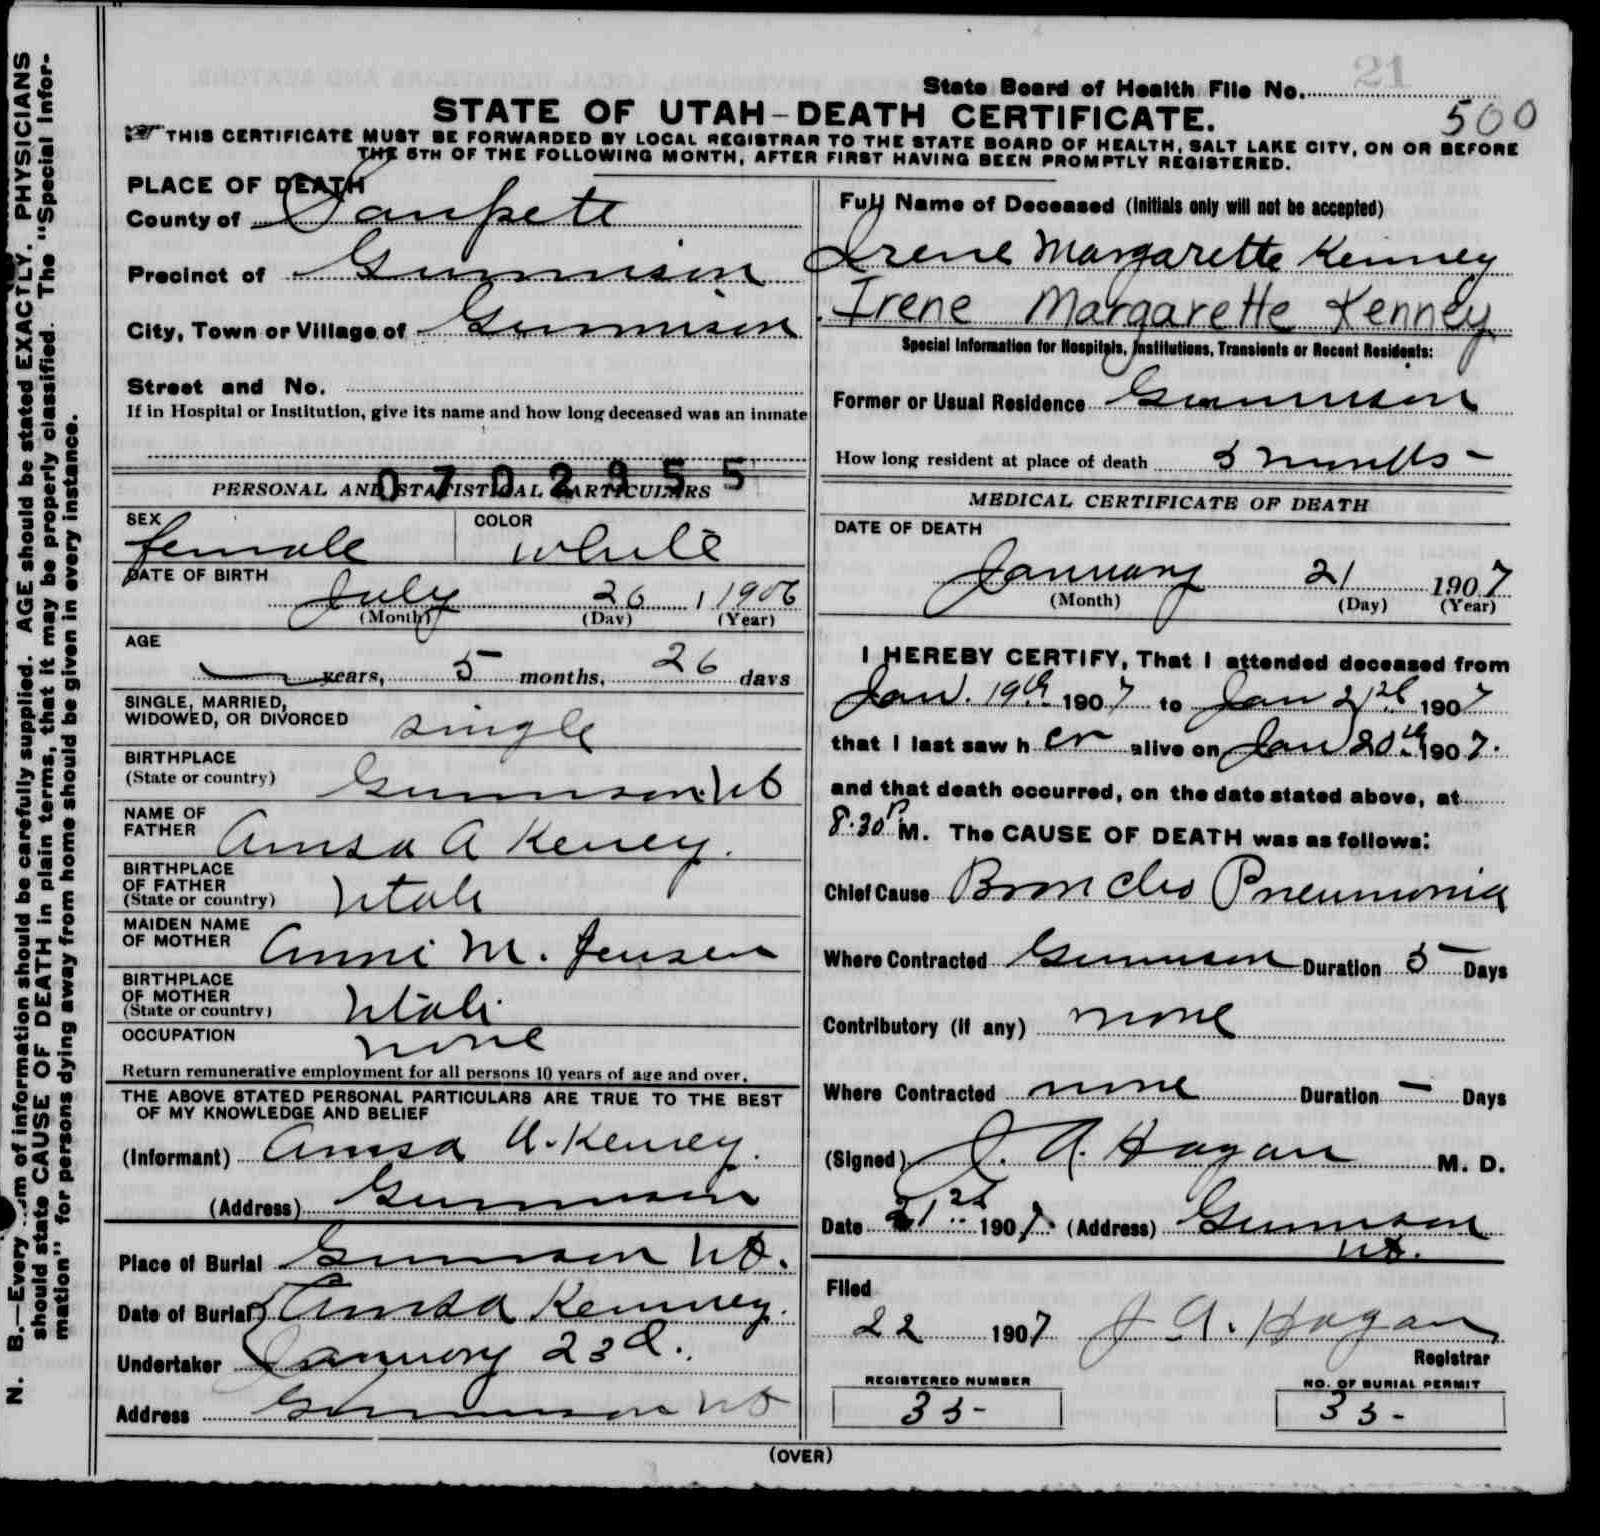 N. B.—Every item of information should be carefully supplied. AGE should be stated EXACTLY. PHYSICIANS
should state CAUSE OF DEATH in plain terms, that it may be properly classified. The "Special Infor-
mation" for persons dying away from home should be given in every instance.
21
State Board of Health File No.
500
STATE OF UTAH-DEATH CERTIFICATE.
THIS CERTIFICATE MUST BE FORWARDED BY LOCAL REGISTRAR TO THE STATE BOARD OF HEALTH, SALT LAKE CITY, ON OR BEFORE
THE 5TH OF THE FOLLOWING MONTH, AFTER FIRST HAVING BEEN PROMPTLY REGISTERED.
PLACE OF DEATH
County of Sanpete
Precinct of Gunnison
City, Town or Village of Gunnison
Street and No.
If in Hospital or Institution, give its name and how long deceased was an inmate
0702955
PERSONAL AND STATISTICAL PARTICULARS
SEX female COLOR white
DATE OF BIRTH
July 26 1 1906
(Month) (Day) (Year)
AGE
years, 5 months, 26 days
SINGLE, MARRIED,
WIDOWED, OR DIVORCED single
BIRTHPLACE
(State or country) Gunnison Ut
NAME OF
FATHER Amsa A Kenney.
BIRTHPLACE
OF FATHER
(State or country) Utah
MAIDEN NAME
OF MOTHER Annie M. Jensen
BIRTHPLACE
OF MOTHER
(State or country) Utah
OCCUPATION none
Return remunerative employment for all persons 10 years of age and over.
THE ABOVE STATED PERSONAL PARTICULARS ARE TRUE TO THE BEST
OF MY KNOWLEDGE AND BELIEF
(Informant) Amsa A. Kenney.
(Address) Gunnison
Place of Burial Gunnison Ut.
Date of Burial Amsa Kenney.
Undertaker January 23d.
Address Gunnison Ut
Full Name of Deceased (Initials only will not be accepted)
Irene Margarette Kenney
Irene Margarette Kenney
Special Information for Hospitals, Institutions, Transients or Recent Residents:
Former or Usual Residence Gunnison
How long resident at place of death 5 months -
MEDICAL CERTIFICATE OF DEATH
DATE OF DEATH
January 21 1907
(Month) (Day) (Year)
I HEREBY CERTIFY, That I attended deceased from
Jan. 19th 1907 to Jan 21st 1907
that I last saw her alive on Jan 20th 1907.
and that death occurred, on the date stated above, at
8.30 P M. The CAUSE OF DEATH was as follows:
Chief Cause Broncho Pneumonia
Where Contracted Gunnison Duration 5 Days
Contributory (if any) none
Where Contracted none Duration — Days
(Signed) J. A. Hagan M. D.
Date 21st 1907 (Address) Gunnison
Ut.
Filed
22 1907 J A. Hagan
Registrar
REGISTERED NUMBER NO. OF BURIAL PERMIT
35 35
(OVER)